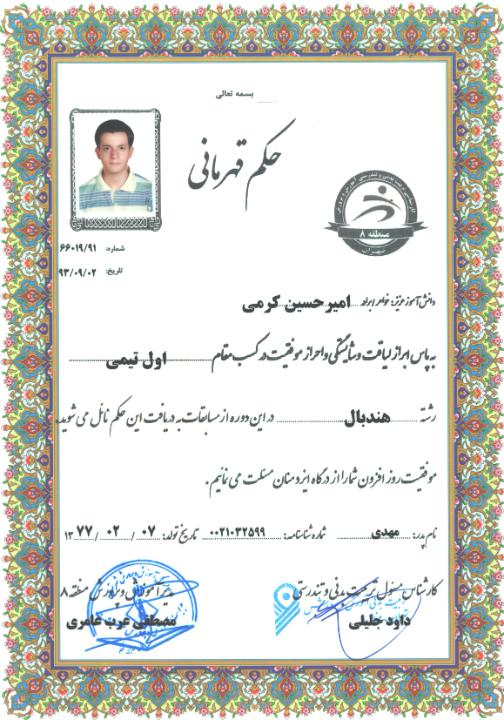 بسمه تعالی
حکم قهرمانی
منطقه ۸
تهران
شماره: ۶۶۰۱۹/۹۱
تاریخ: ۹۳/۰۹/۰۲
دانش آموز عزیز: خواهر/برادر امیرحسین کرمی
به پاس ابراز لیاقت و شایستگی و احراز موفقیت در کسب مقام اول تیمی
رشته هندبال در این دوره از مسابقات به دریافت این حکم نائل می شوید.
موفقیت روز افزون شما را از درگاه ایزد منان مسئلت می نمائیم.
نام پدر: مهدی شماره شناسنامه: ۰۰۲۱۰۳۲۵۹۹ تاریخ تولد: ۰۷ / ۰۲ / ۱۳۷۷
کارشناس مسئول تربیت بدنی و تندرستی
داود جلیلی
مدیر آموزش و پرورش منطقه ۸
مصطفی عرب عامری